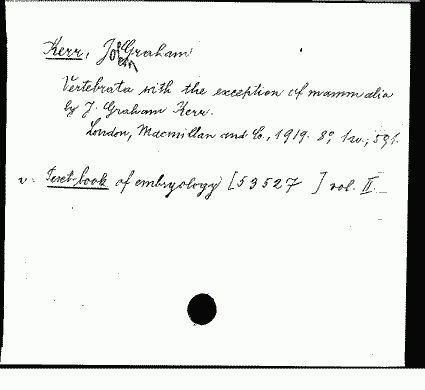 Kerr, John Graham
Vertebrata with the exception of mammalia
by J. Graham Kerr.
London, Macmillan and Co., 1919. 8°, 1 v.; 591.
v. Text-book of embryology [53527 ] vol. II.